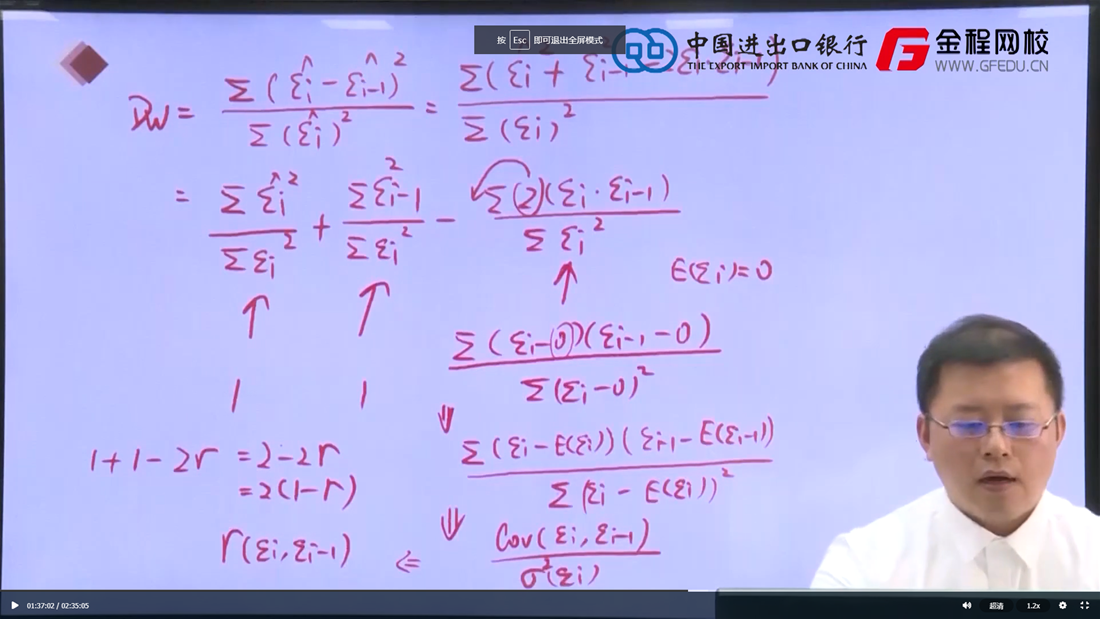 按 Esc 即可退出全屏模式
中国进出口银行
THE EXPORT-IMPORT BANK OF CHINA
金程网校
WWW.GFEDU.CN
DW = Σ(ε̂i - ε̂i-1)² / Σ(ε̂i)² = Σ(εi² + εi-1² - 2εi εi-1) / Σ(εi)²
= Σε̂i² / Σεi² + Σεi-1² / Σεi² - Σ(2)(εi·εi-1) / Σεi²
E(εi)=0
Σ(εi-0)(εi-1-0) / Σ(εi-0)²
1 1
⇓ Σ(εi-E(εi))(εi-1-E(εi-1)) / Σ(εi-E(εi))²
1+1-2r = 2-2r
= 2(1-r)
r(εi,εi-1) ⇐ ⇓ Cov(εi,εi-1) / σ²(εi)
01:37:02 / 02:35:05
超清
1.2x